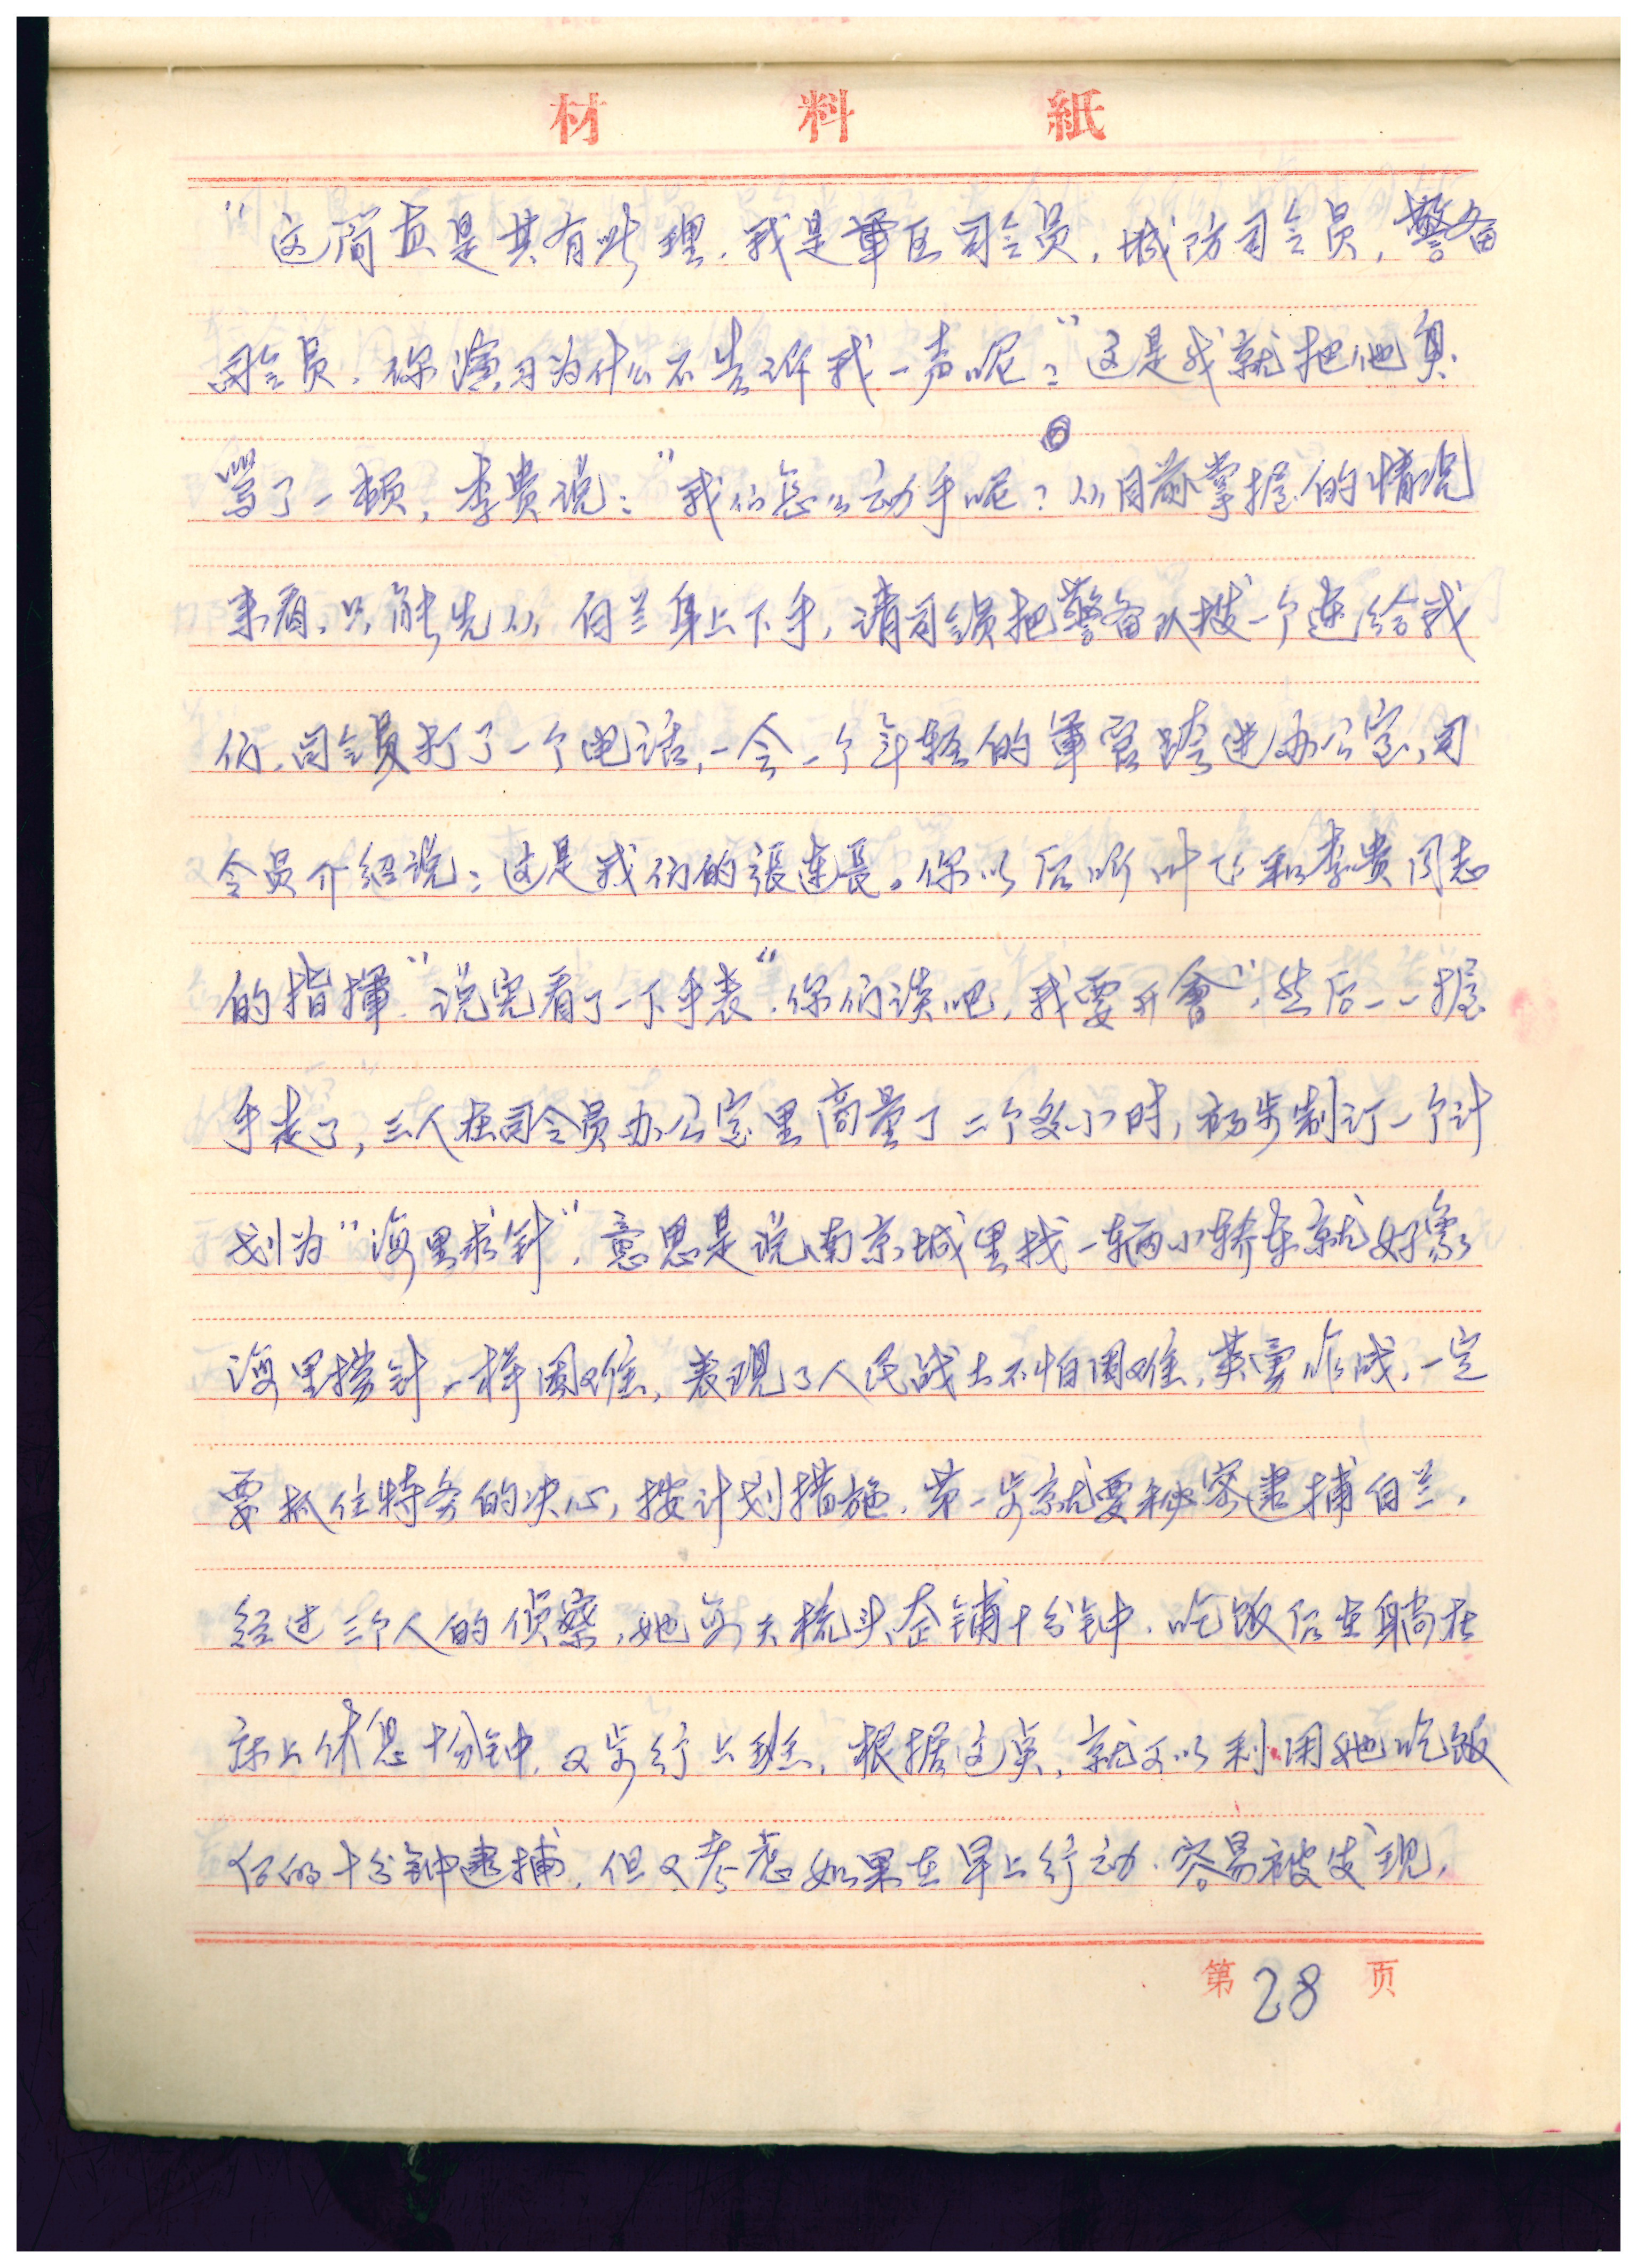 材料紙
“这简直是其有此理.我是軍区司令员,城防司令员,警备
司令员.你演习为什么不告诉我一声呢?”这是我就把他臭
骂了一顿,李贵说:“我们怎么动手呢?从目前掌握的情况
来看,只能先从白兰身上下手,请司令员把警备队拨一个连给我
们.司令员打了一个电话,一会一个年轻的軍官跨进办公室,司
令员介绍说:这是我们的張连長.你以后听叶飞和李贵同志
的指揮”说完看了一下手表“你们谈吧,我要开會”,然后一一握
手走了,三人在司令员办公室里商量了二个多小时,初步制订一个计
划为“海里求針”.意思是说南京城里找一辆小轿车就好象
海里捞針一样困难,表現了人民战士不怕困难,英勇作战,一定
要抓住特务的决心,按计划措施.第一步就要秘密逮捕白兰.
经过三个人的侦察,她每天梳头、整铺十分钟.吃饭后要躺在
床上休息十分钟,又步行上班.根据这点,就可以利用她吃饭
后的十分钟逮捕.但又考虑如果在早上行动.容易被发现.
第28页